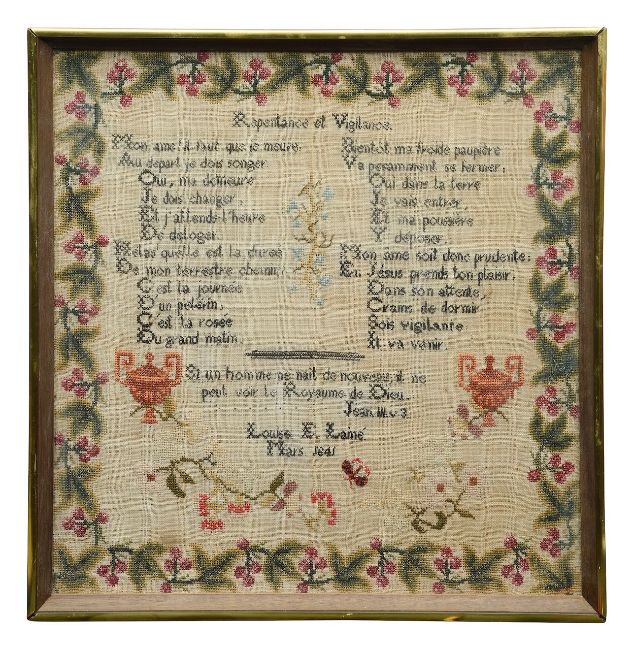 Repentance et Vigilance.
Mon ame il faut que je meure.
Au depart je dois songer
Oui, ma demeure
Je dois changer,
Et j'attends l'heure
De deloger.
Helas quelle est la duree
De mon terrestre chemin,
C'est la journée
D'un pelerin,
C'est la rosée
Du grand matin.
Bientot ma froide paupière
Va peramment se fermer;
Oui dans la terre
Je vais entrer,
Et ma poussière
Y deposer.
Mon ame soit donc prudente;
En Jesus prends ton plaisir,
Dans son attente,
Crains de dormir
Sois vigilante
Il va venir.
Si un homme ne nait de nouveau, il ne
peut voir le Royaume de Dieu.
Jean III. v 3.
Louise E. Lamé
Mars 1841